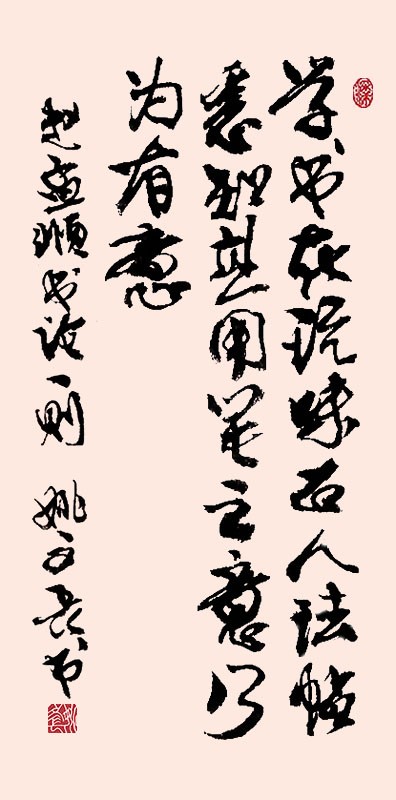 学书在玩味古人法帖
悉知其用笔之意乃
为有意
赵孟頫书论一则 姚书